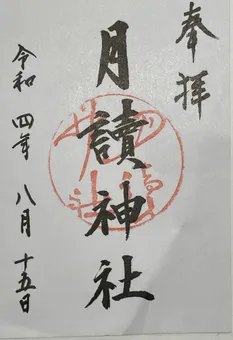 奉拝
月讀神社
令和四年八月十五日